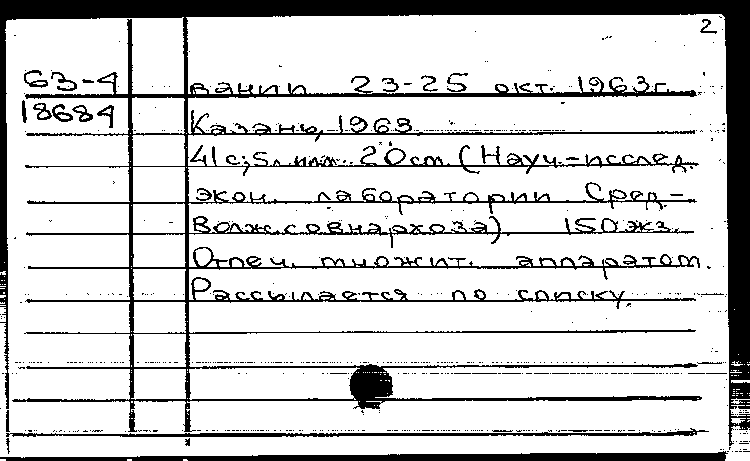 2
63-4 вании 23-25 окт. 1963г.
18684 Казань, 1963.
41с; 5л илл. 20см. (Науч.-исслед.
экон. лаборатории Сред-
Волж.совнархоза). 150 экз.
Отпеч. множит. аппаратом.
Рассылается по списку.